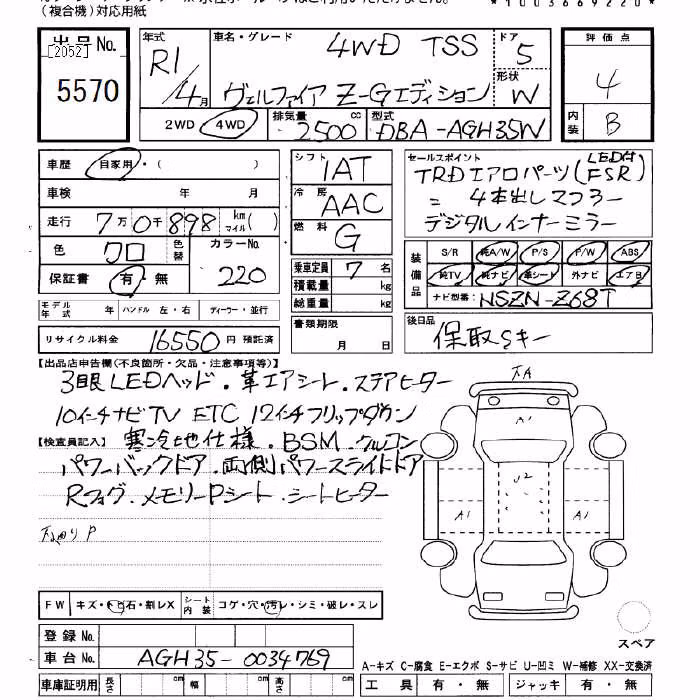 (複合機)対応用紙
*1003669220*
出品No. [2052] 5570
年式 R1/4月
車名・グレード 4WD TSS
ヴェルファイア Z-Gエディション
ドア 5
形状 W
2WD 4WD
排気量 2500 cc
型式 DBA-AGH35W
評価点 4
内装 B
車歴 自家用・( )
車検 年 月
走行 7万0千898 km マイル( )
色 クロ 色替
カラーNo. 220
保証書 有・無
シフト IAT
冷房 AAC
燃料 G
乗車定員 7 名
積載量 kg
総重量 kg
セールスポイント
LED付
TRDエアロパーツ(FSR)
〃 4本出しマフラー
デジタルインナーミラー
装備品 S/R 純A/W P/S P/W ABS
純TV 純ナビ 革シート 外ナビ エアB
ナビ型番: NSZN-Z68T
モデル年式 年 ハンドル 左・右 ディーラー・並行
リサイクル料金 16550 円 預託済
書類期限 月 日
後日品 保取Sキー
【出品店申告欄(不良箇所・欠品・注意事項等)】
3眼LEDヘッド・革エアシート・ステアヒーター
10インチナビTV ETC 12インチフリップダウン
【検査員記入】 寒冷地仕様・BSM・クルコン
パワーバックドア・両側パワースライドドア
Rフォグ・メモリーPシート・シートヒーター
下廻り P
天A
A1
U2
A1 A1
FW キズ・トビ石・割レX シート内装 コゲ・穴・汚レ・シミ・破レ・スレ
スペア
登録No.
車台No. AGH35-0034769
A-キズ C-腐食 E-エクボ S-サビ U-凹ミ W-補修 XX-交換済
車庫証明用 長さ cm 幅 cm 高さ cm
工具 有・無 ジャッキ 有・無